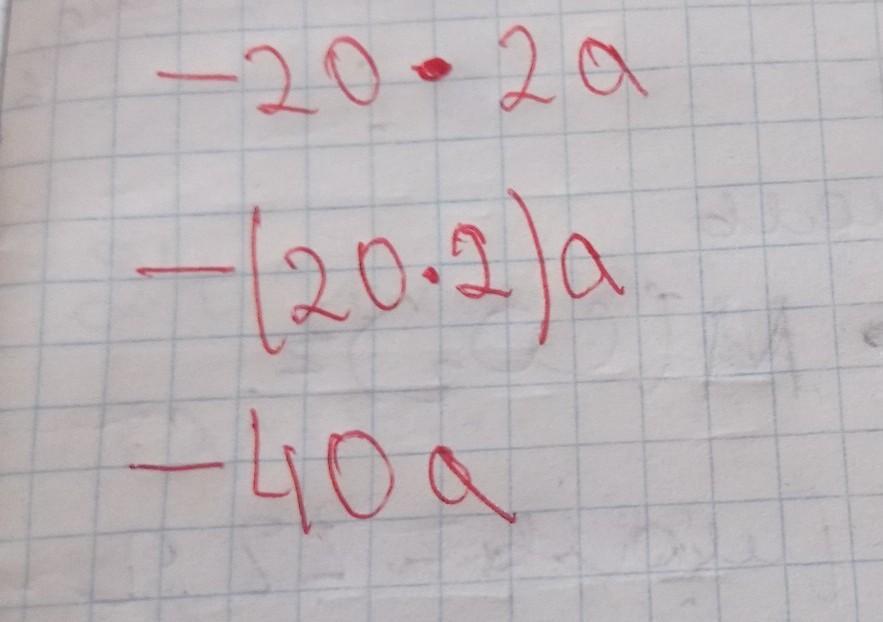 -20 • 2a
-(20·2)a
-40a